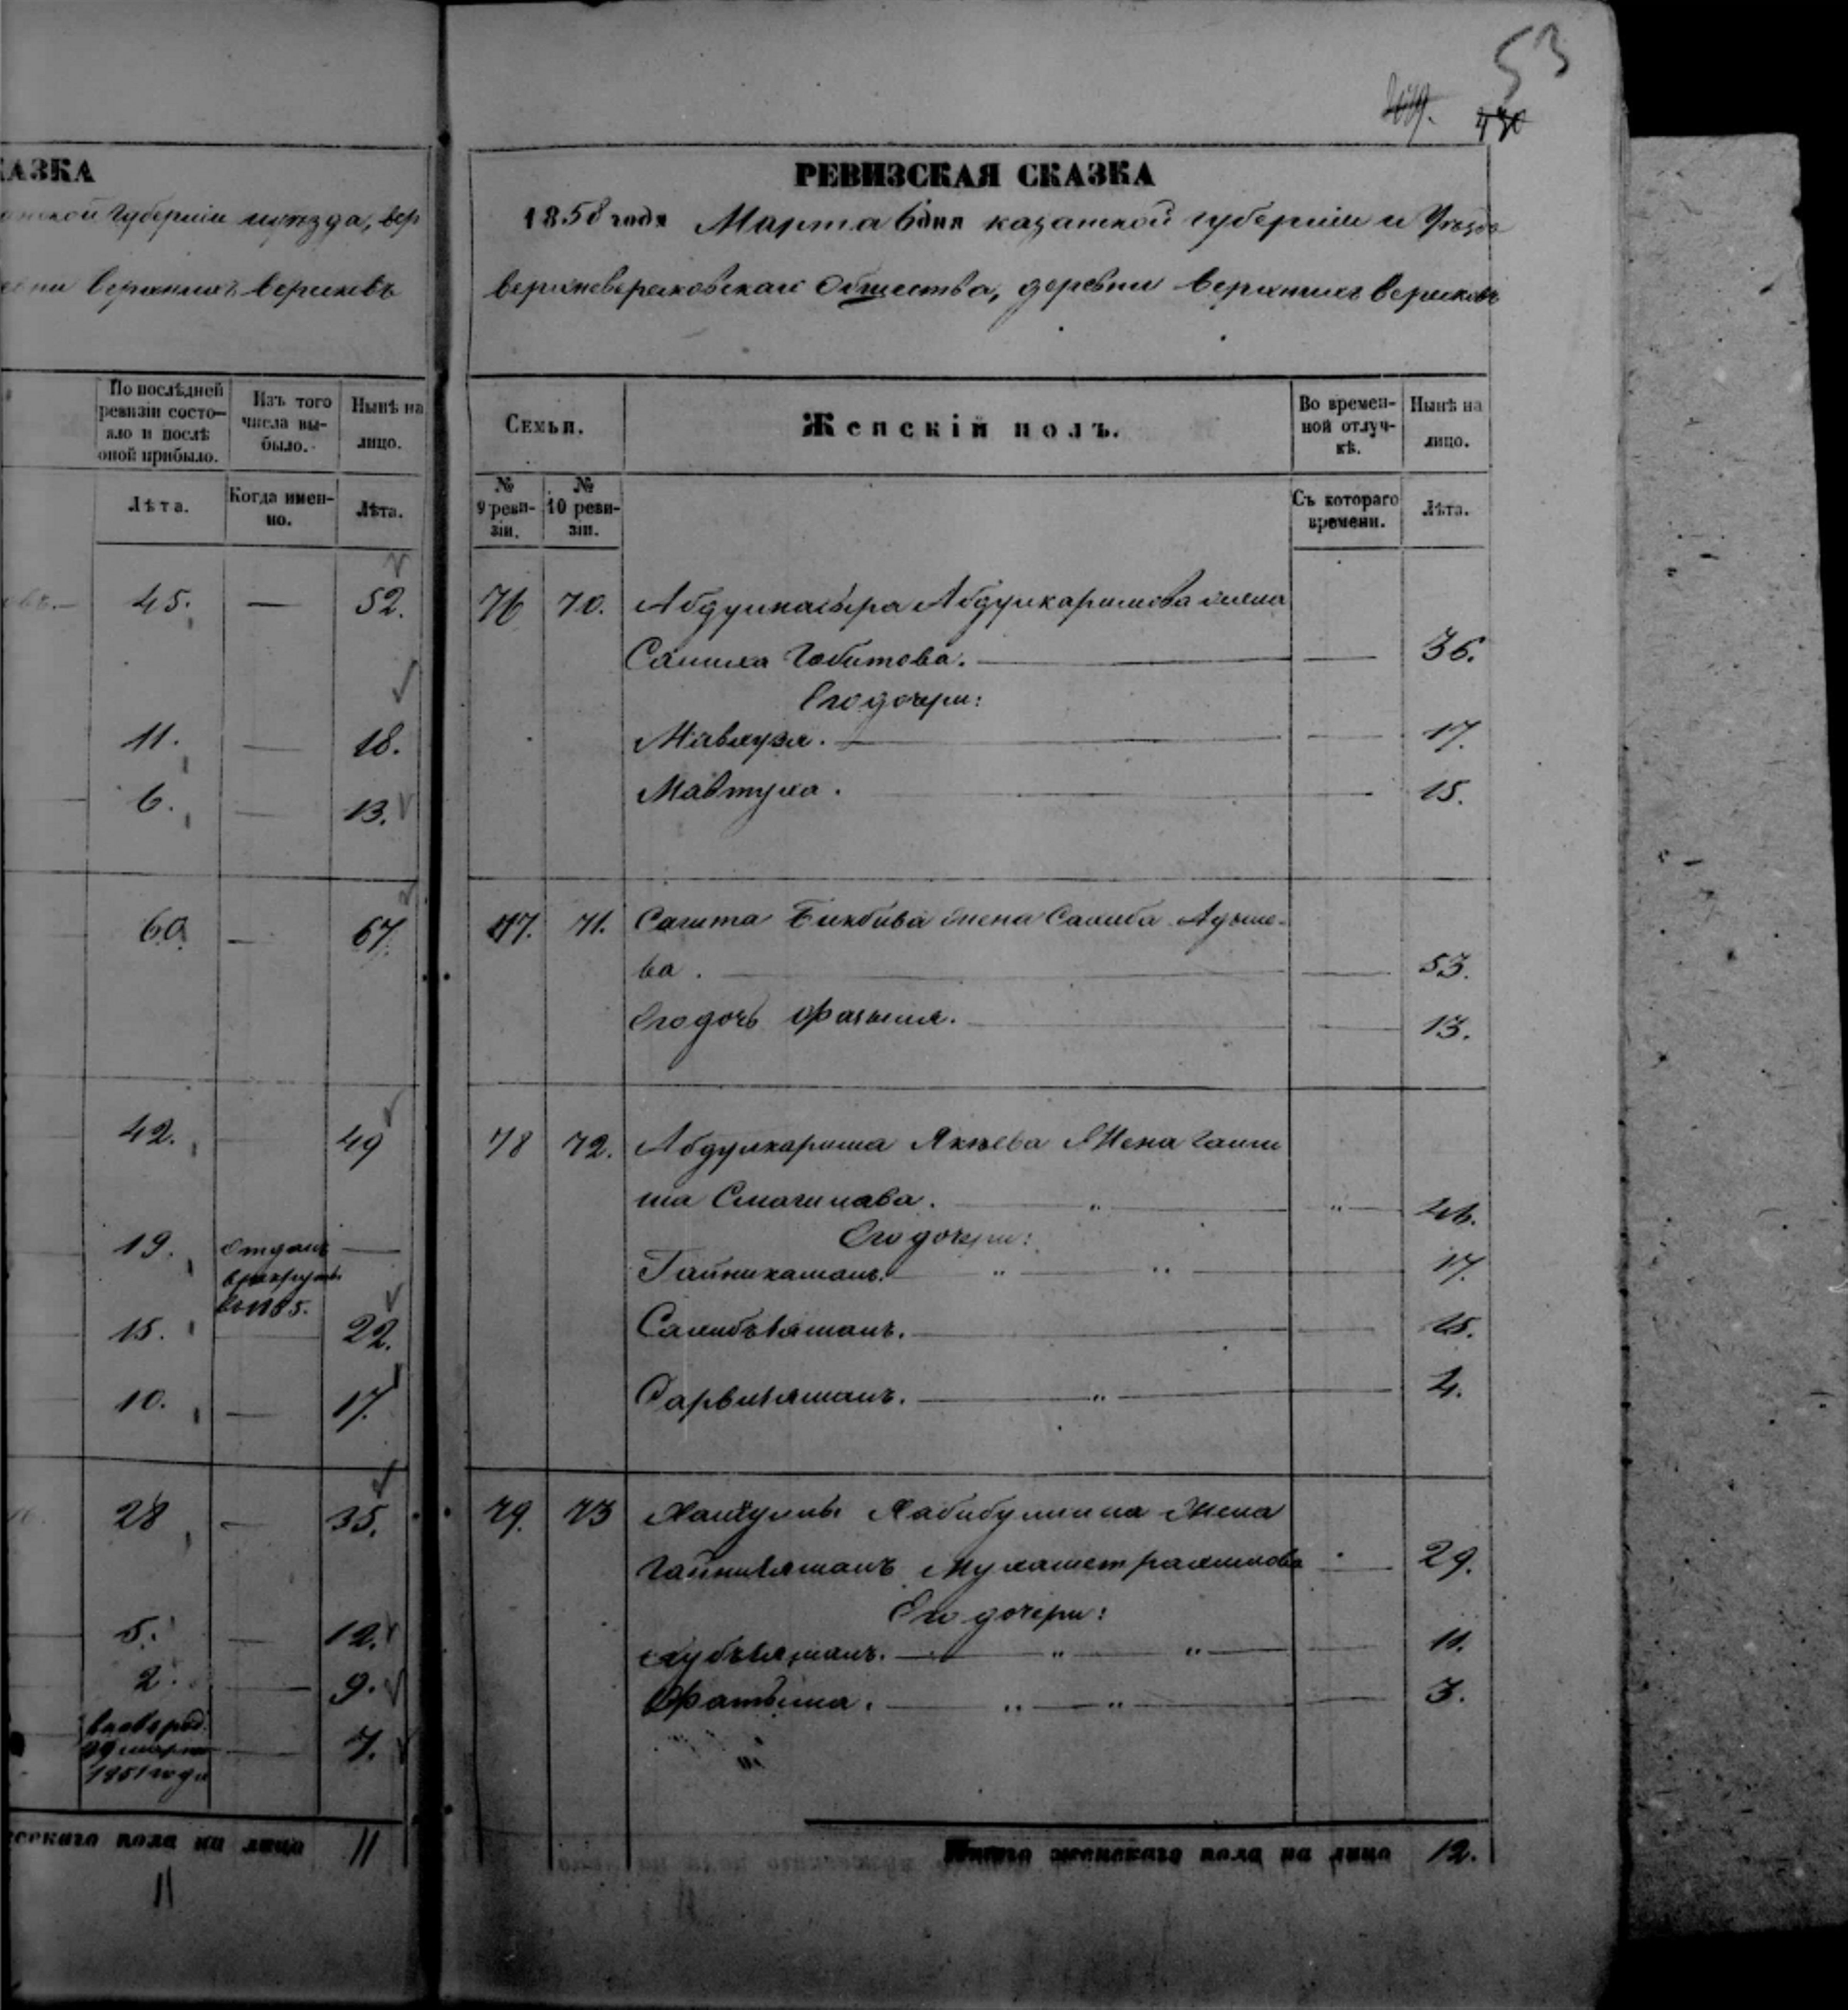 53
430
АЗКА
губернiи и уѣзда, вер
Верхнихъ Верезовъ
По послѣдней ревизiи состо-
яло и послѣ
оной прибыло.
Изъ того
числа вы-
было.
Нынѣ на
лицо.
Лѣта.
Когда имен-
но.
Лѣта.
45. — 52.
11. — 18.
6. — 13.
60. — 67.
42. 49
19. Отданъ —
в рекруты
15. 22.
10. — 17.
28 — 35.
5. — 12.
2. — 9.
вновь род.
29 марта — 7.
1851 года
скаго пола на лицо 11
11
РЕВИЗСКАЯ СКАЗКА
1858 года Марта 6 дня казанской губернiи и Уѣзда
общества, деревни Верхнихъ
Семьи.
Женскiй полъ.
Во времен-
ной отлуч-
кѣ.
Нынѣ на
лицо.
№
9 реви-
зiи.
№
10 реви-
зiи.
Съ котораго
времени.
Лѣта.
76 70. Абдулнасыра Абдулкаримова жена
Салиха Габитова. — — 36.
Его дочери:
Мавлуза. — — 17.
Мавтуха. — — 15.
77. 71. Сагита Бикбива жена Сахиба
ва. — — 53.
Его дочь Фазыля. — — 13.
78 72. Абдулкарима Якѣева Жена Гали
ма Смагилава. — „ — „ — 46.
Его дочери:
Гайникамалъ. — „ — „ — — 17.
Сахибъямалъ. — — 15.
Сарвиямалъ. — „ — — 4.
79. 73 Хабибуллина Жена
Гайниямалъ Мухаметрахимова — 29.
Его дочери:
Хубъямалъ. — „ — „ — — 11.
Фатыма. — „ — „ — — 3.
Итого женскаго пола на лицо 12.